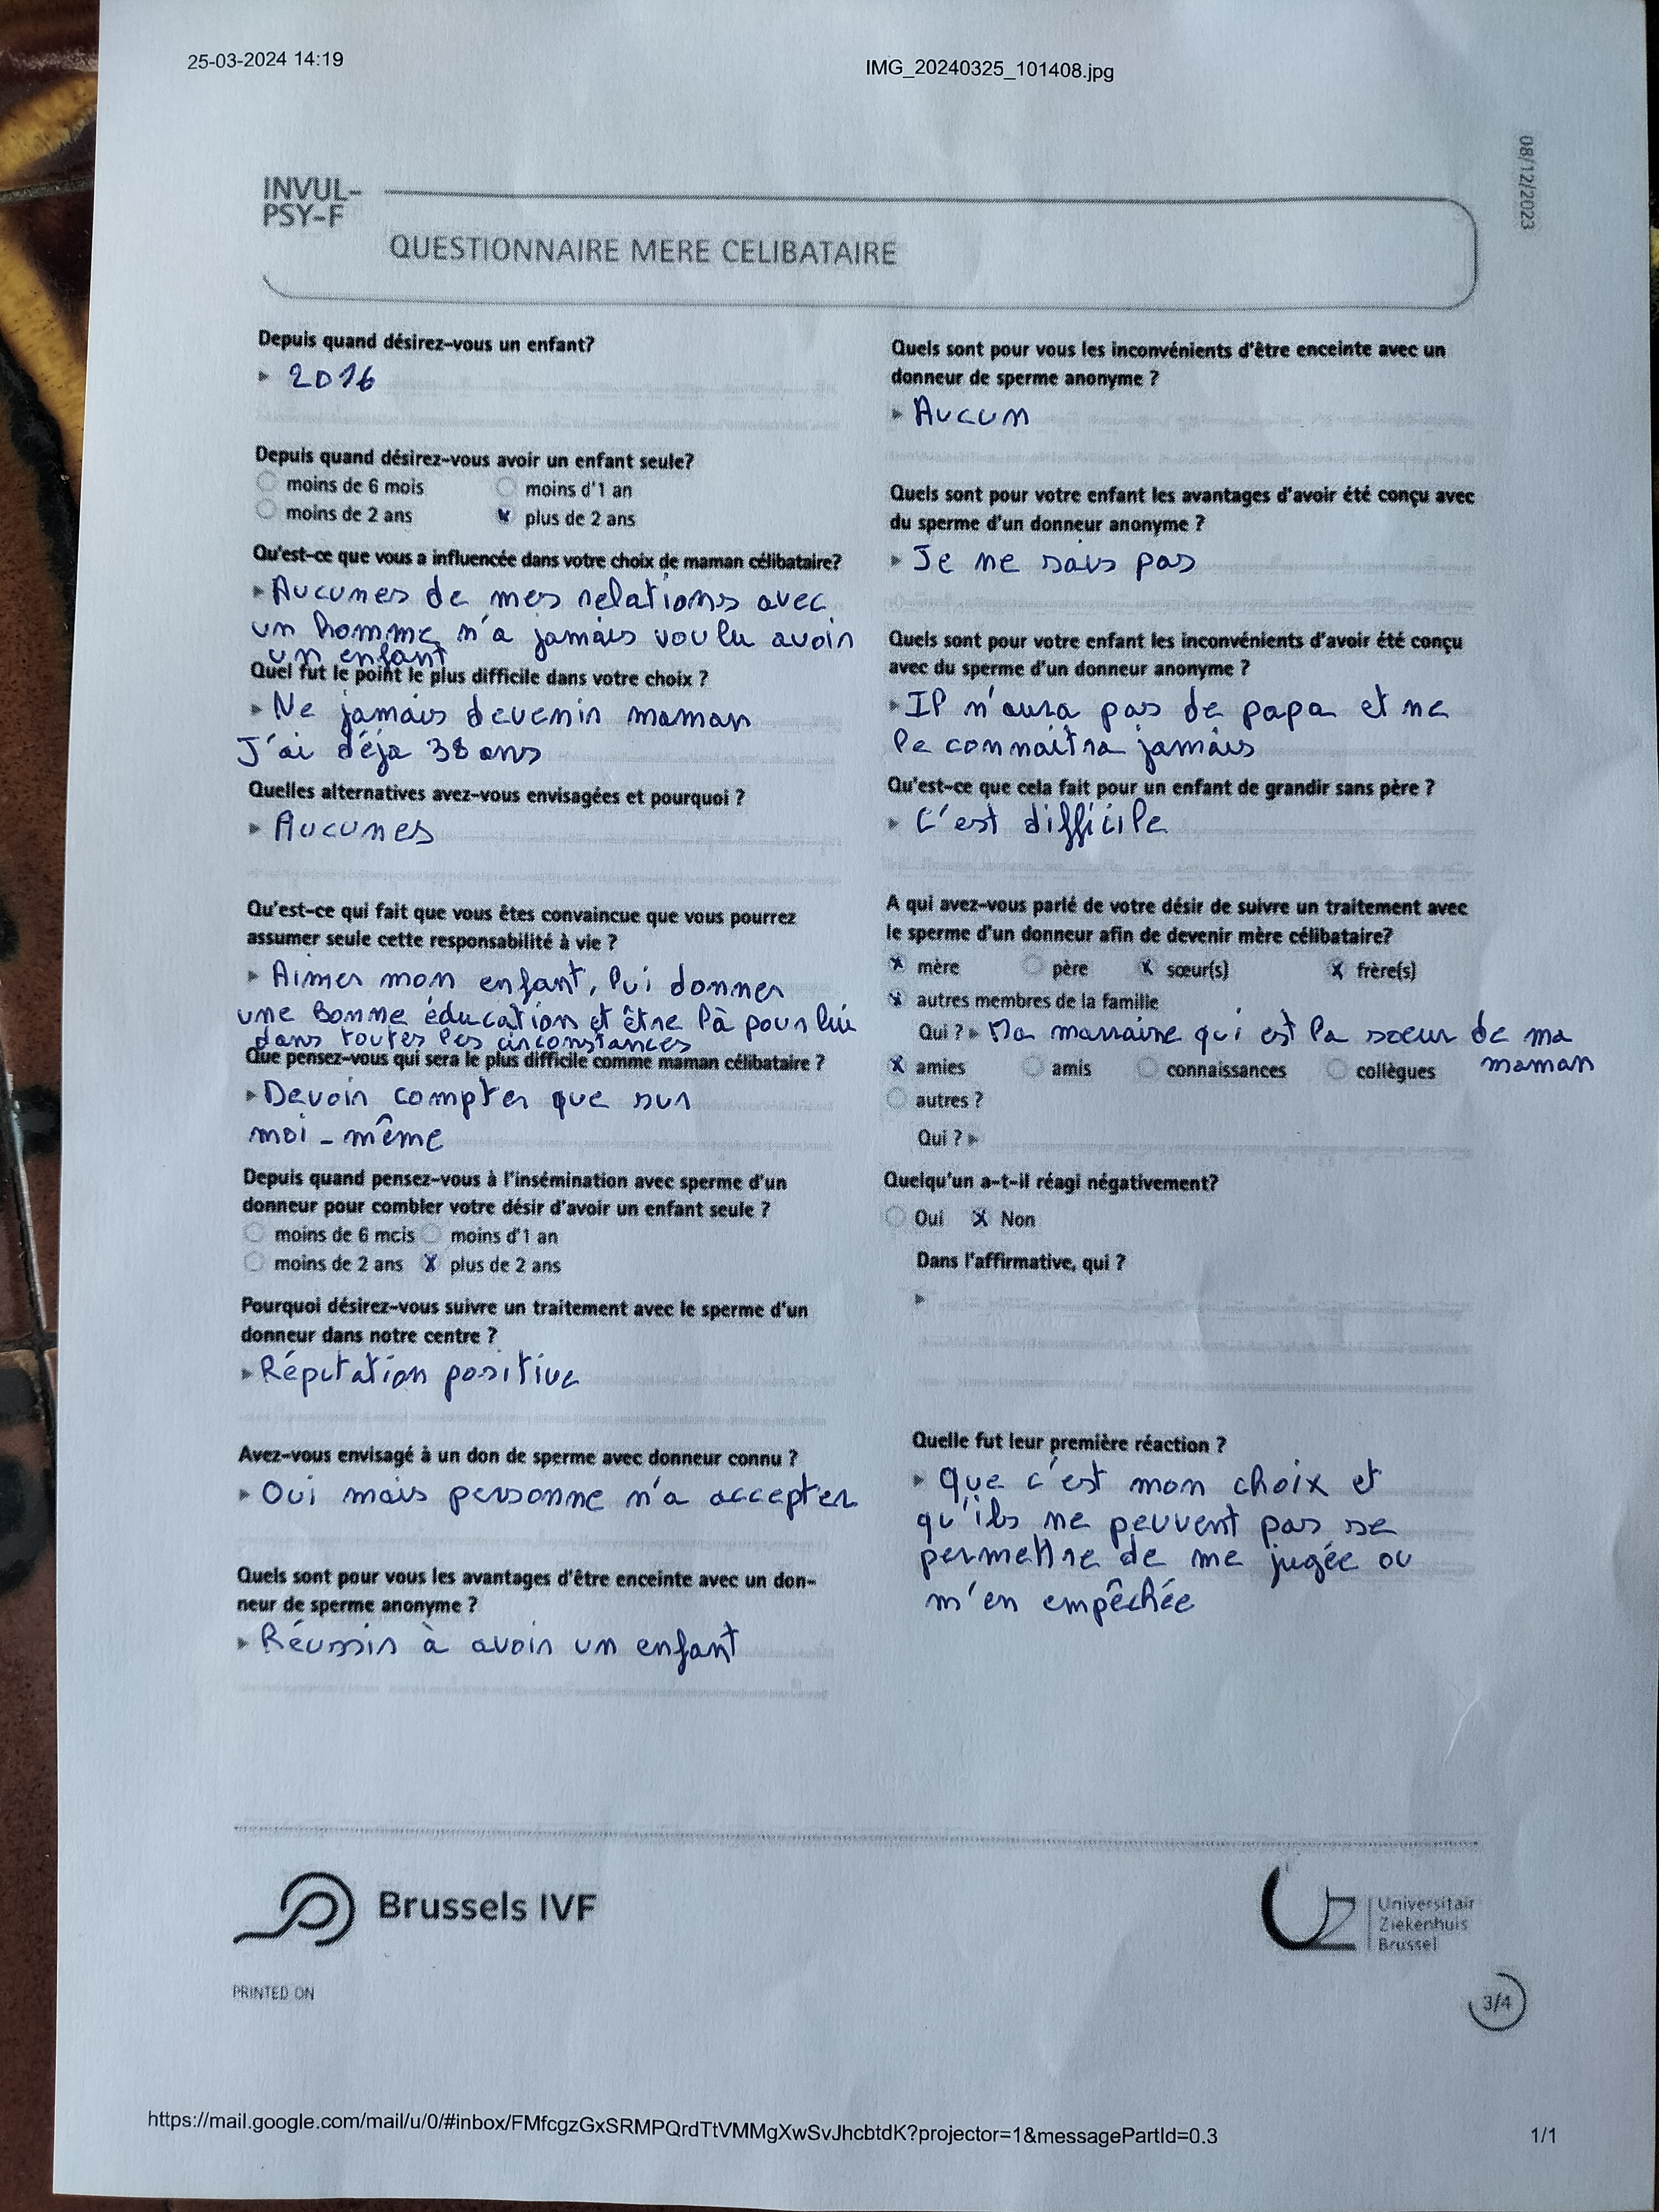 25-03-2024 14:19
IMG_20240325_101408.jpg
08/12/2023
INVUL-
PSY-F
QUESTIONNAIRE MERE CELIBATAIRE
Depuis quand désirez-vous un enfant?
2016
Depuis quand désirez-vous avoir un enfant seule?
moins de 6 mois
moins d'1 an
moins de 2 ans
x plus de 2 ans
Qu'est-ce que vous a influencée dans votre choix de maman célibataire?
Aucunes de mes relations avec
un homme n'a jamais voulu avoir
un enfant
Quel fut le point le plus difficile dans votre choix ?
Ne jamais devenir maman
J'ai déja 38 ans
Quelles alternatives avez-vous envisagées et pourquoi ?
Aucunes
Qu'est-ce qui fait que vous êtes convaincue que vous pourrez
assumer seule cette responsabilité à vie ?
Aimer mon enfant, lui donner
une bonne éducation et être là pour lui
dans toutes les circonstances
Que pensez-vous qui sera le plus difficile comme maman célibataire ?
Devoir compter que sur
moi-même
Depuis quand pensez-vous à l'insémination avec sperme d'un
donneur pour combler votre désir d'avoir un enfant seule ?
moins de 6 mois
moins d'1 an
moins de 2 ans
x plus de 2 ans
Pourquoi désirez-vous suivre un traitement avec le sperme d'un
donneur dans notre centre ?
Réputation positive
Avez-vous envisagé à un don de sperme avec donneur connu ?
Oui mais personne n'a accepter
Quels sont pour vous les avantages d'être enceinte avec un don-
neur de sperme anonyme ?
Réussir à avoir un enfant
Quels sont pour vous les inconvénients d'être enceinte avec un
donneur de sperme anonyme ?
Aucun
Quels sont pour votre enfant les avantages d'avoir été conçu avec
du sperme d'un donneur anonyme ?
Je ne sais pas
Quels sont pour votre enfant les inconvénients d'avoir été conçu
avec du sperme d'un donneur anonyme ?
Il n'aura pas de papa et ne
le connaitra jamais
Qu'est-ce que cela fait pour un enfant de grandir sans père ?
C'est difficile
A qui avez-vous parlé de votre désir de suivre un traitement avec
le sperme d'un donneur afin de devenir mère célibataire?
x mère
père
x sœur(s)
x frère(s)
x autres membres de la famille
Qui ? Ma marraine qui est la soeur de ma
maman
x amies
amis
connaissances
collègues
autres ?
Qui ?
Quelqu'un a-t-il réagi négativement?
Oui
x Non
Dans l'affirmative, qui ?
Quelle fut leur première réaction ?
Que c'est mon choix et
qu'ils ne peuvent pas se
permettre de me jugée ou
m'en empêchée
Brussels IVF
UZ
Universitair
Ziekenhuis
Brussel
PRINTED ON
3/4
https://mail.google.com/mail/u/0/#inbox/FMfcgzGxSRMPQrdTtVMMgXwSvJhcbtdK?projector=1&messagePartId=0.3
1/1